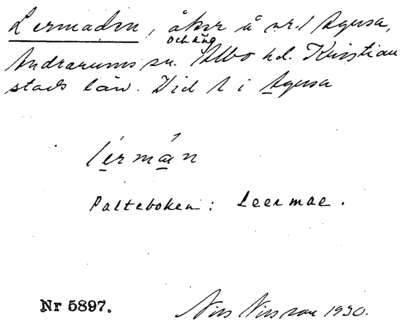 Lermadin, åker å nr 1 Agusa,
och äng
Andrarums sn. Albo hd. Kristian
stads län. Did 1 i Agusa
lermán
Palteboken: Leermae.
Nr 5897. Nils Nilsson 1930.